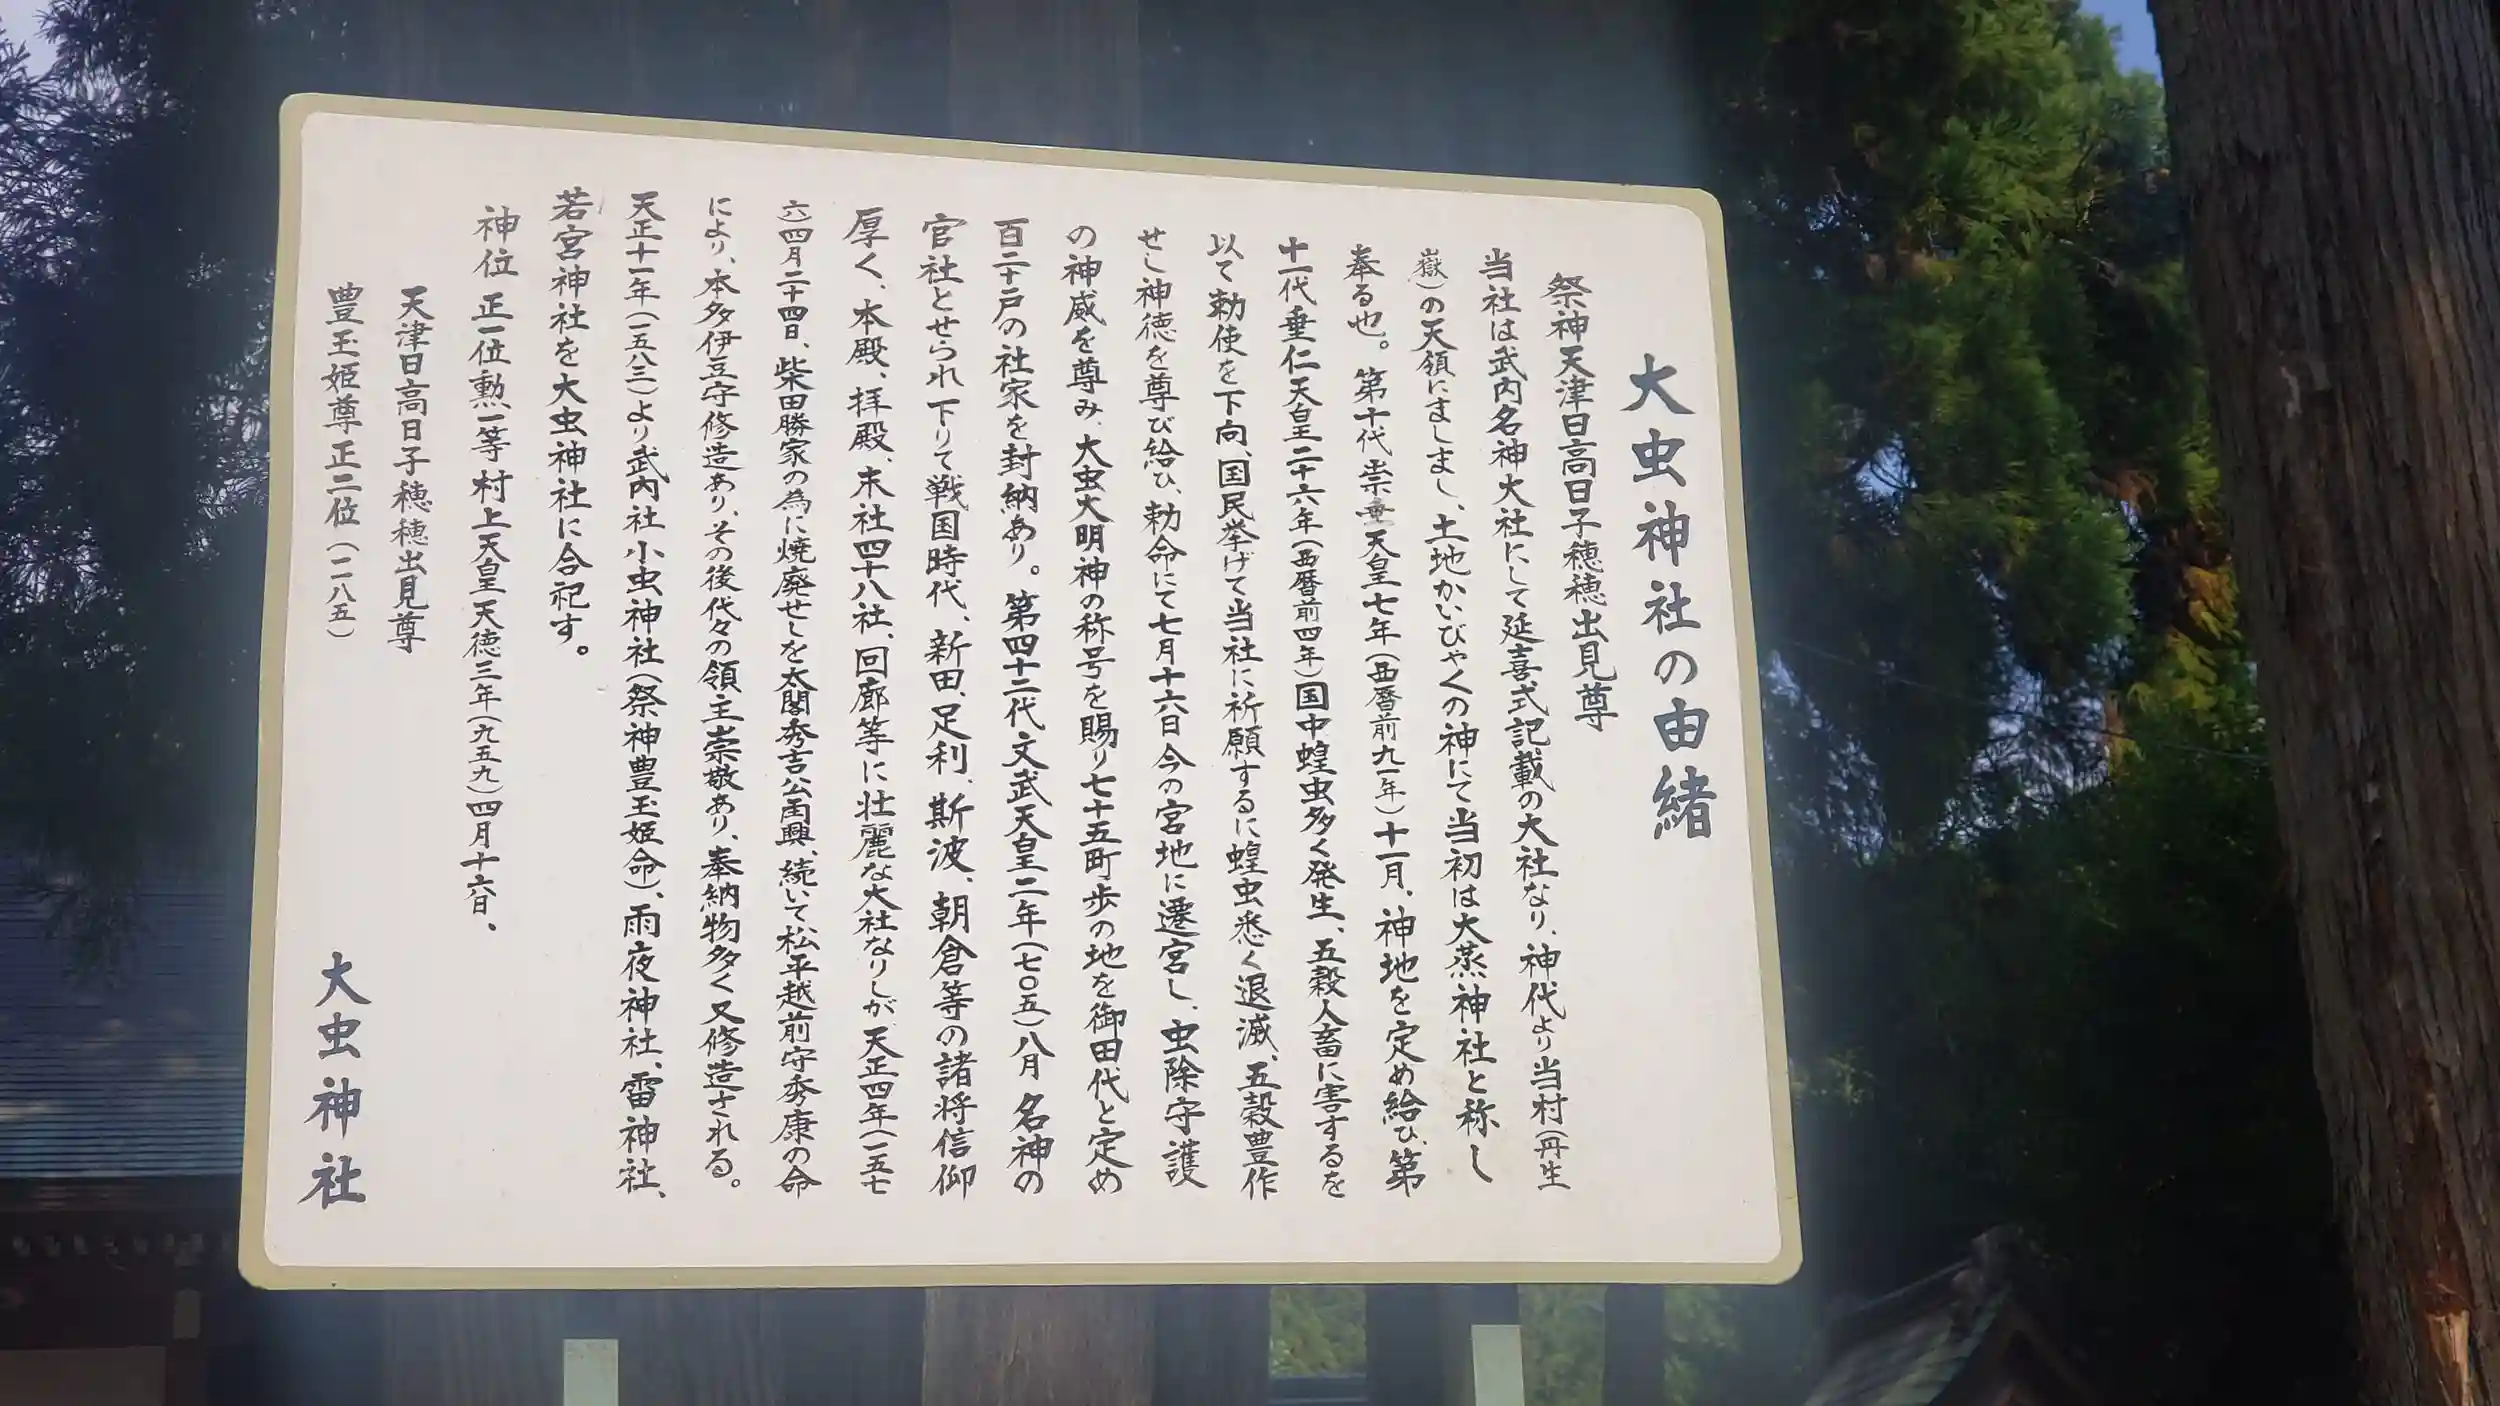 大虫神社の由緒
祭神天津日高日子穂穂出見尊
当社は武内名神大社にして延喜式記載の大社なり、神代より当村(丹生
嶽)の天領にましまし、土地かいびゃくの神にて当初は大蒸神社と称し
奉る也。第十代崇重天皇七年(西暦前九一年)十一月、神地を定め給ひ、第
十一代垂仁天皇二十六年(西暦前四年)国中蝗虫多く発生、五穀人畜に害するを
以て勅使を下向、国民挙げて当社に祈願するに蝗虫悉く退滅、五穀豊作
せし神徳を尊び給ひ、勅命にて七月十六日今の宮地に遷宮し、虫除守護
の神威を尊み、大虫大明神の称号を賜り七十五町歩の地を御田代と定め
百二十戸の社家を封納あり。第四十二代文武天皇二年(七〇五)八月名神の
官社とせられ下りて戦国時代、新田、足利、斯波、朝倉等の諸将信仰
厚く、本殿、拝殿、末社四十八社、回廊等に壮麗な大社なりしが、天正四年(一五七
六)四月二十四日、柴田勝家の為に焼廃せしを太閤秀吉公再興、続いて松平越前守秀康の命
により、本多伊豆守修造あり、その後代々の領主崇敬あり、奉納物多く又修造される。
天正十一年(一五八三)より武内社小虫神社(祭神豊玉姫命)、雨夜神社、雷神社、
若宮神社を大虫神社に合祀す。
神位 正一位勲一等 村上天皇天徳三年(九五九)四月十六日、
天津日高日子穂穂出見尊
豊玉姫尊正二位(一二八五)
大虫神社